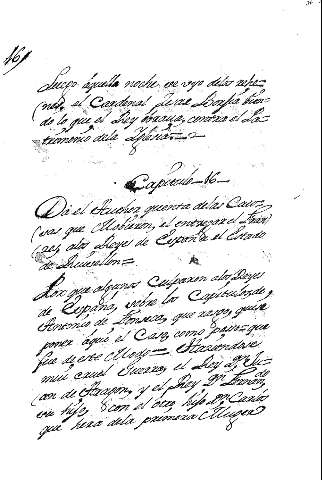 469
Luego aquella noche, se uyo delos rehe-
nes, el Cardenal Cesar Borja bien-
do lo que el Rey obraua, contra el Pa-
trimonio dela Yglesia.
Capitulo 16
Da el Author quenta de las Cau-
sas que Mobieron, el entregar el Fran-
ces alos Reyes de España el Estado
de Ruisellon.
Por que algunos Culparon alos Reyes
de España, sobre los Capitulos, de
Antonio de Fonseca, que rasgo, quise
poner aqui el Caso, como paso que
fue de este Modo. Haziendose
mui cruel Guerra, el Rey Dn. Ju-
an de Aragon, y el Rey Dn. Fernando
su hijo, con el otro hijo Dn. Carlos
que hera dela primera Muger